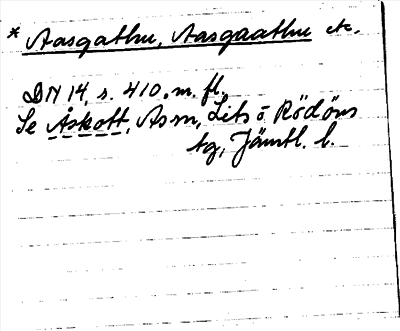 * Aasgathu, Aasgaathu etc.
DN 14, s. 410. m. fl.
Se Åskott, Åsm, Lits o. Rödöns
tg, Jämtl. l.